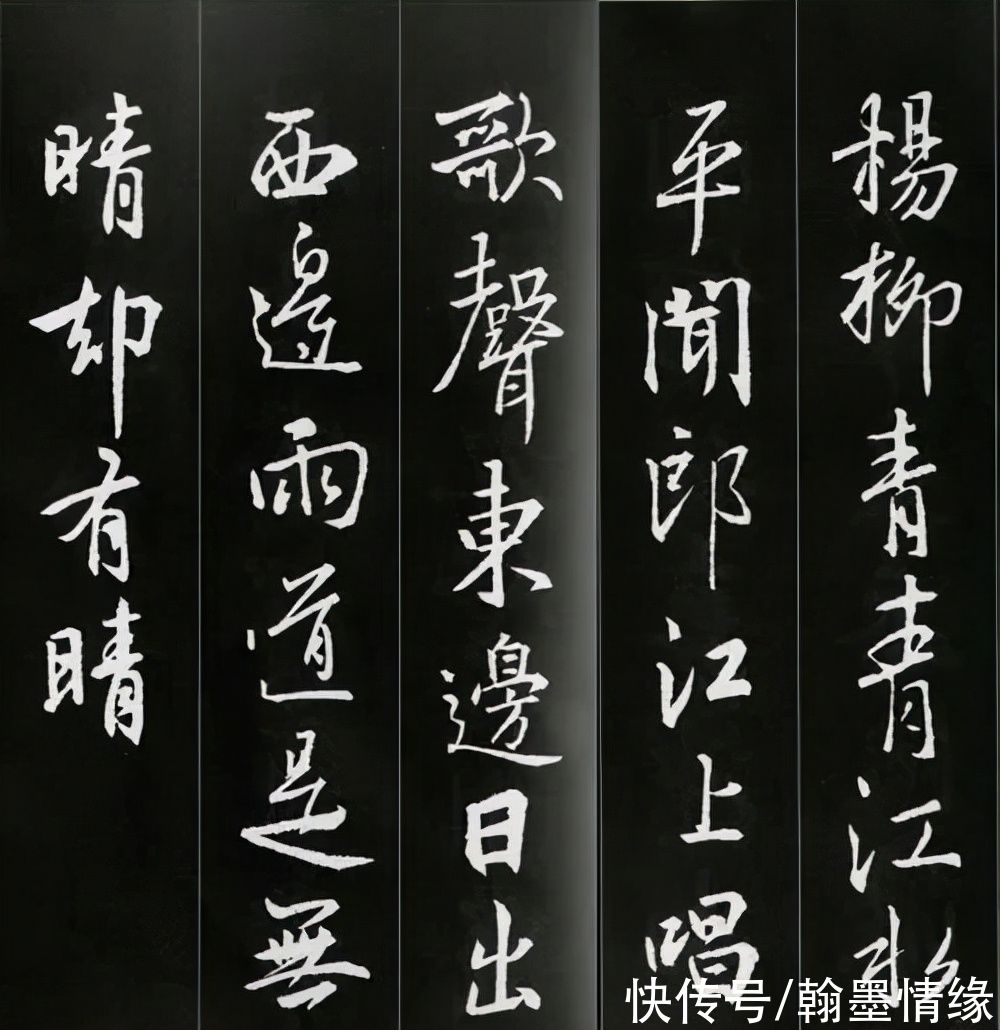 楊柳青青江水
平聞郎江上唱
歌聲東邊日出
西邊雨道是無
晴却有晴
快传号/翰墨情缘